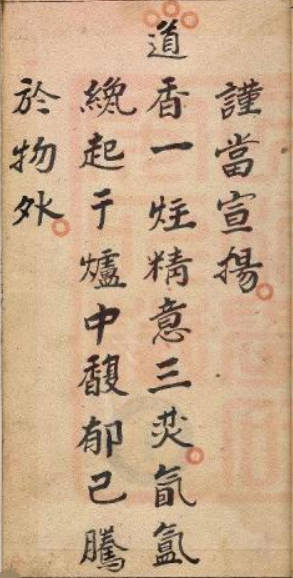 謹當宣揚
道香一炷精意三焚氤氳
纔起于爐中馥郁已騰
於物外